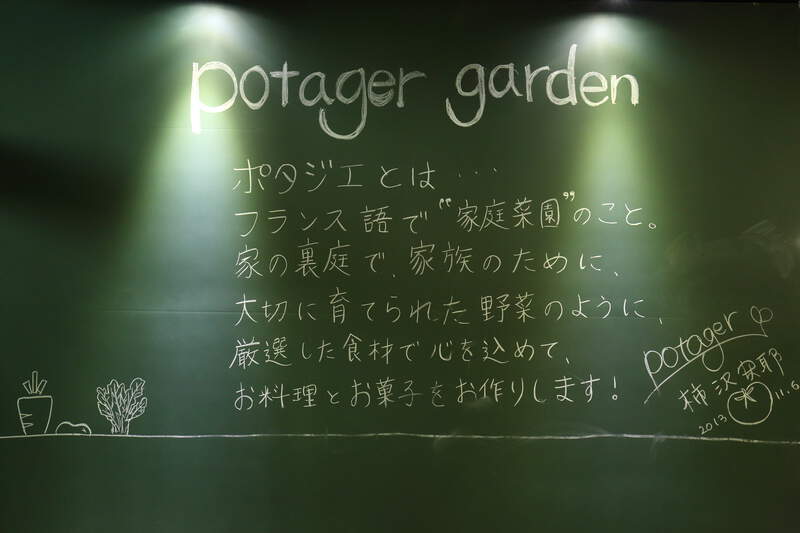 potager garden
ポタジエとは・・・
フランス語で“家庭菜園”のこと。
家の裏庭で、家族のために、
大切に育てられた野菜のように、
厳選した食材で心を込めて、
お料理とお菓子をお作りします!
potager
柿沢安耶
2013 11.6